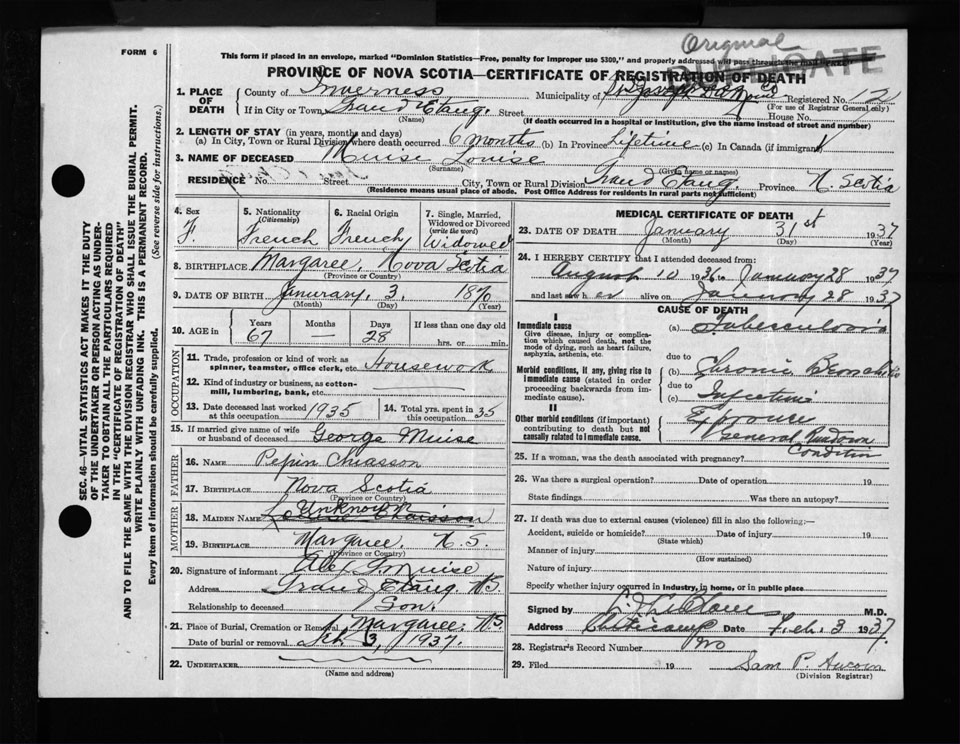 FORM 6
Original
DUPLICATE
This form if placed in an envelope, marked "Dominion Statistics—Free, penalty for improper use $300," and properly addressed will pass through the mail FREE.
PROVINCE OF NOVA SCOTIA—CERTIFICATE OF REGISTRATION OF DEATH
1. PLACE OF DEATH County of Inverness Municipality of Registered No. 12
(For use of Registrar General only)
If in City or Town Grand Etang. Street House No.
(Name) (If death occurred in a hospital or institution, give the name instead of street and number)
2. LENGTH OF STAY (in years, months and days)
(a) In City, Town or Rural Division where death occurred 6 months (b) In Province Lifetime (c) In Canada (if immigrant)
3. NAME OF DECEASED Muise Louise
(Surname) (Given name or names)
RESIDENCE No. Street City, Town or Rural Division Grand Etang. Province N. Scotia
(Residence means usual place of abode. Post Office Address for residents in rural parts not sufficient)
4. Sex F.
5. Nationality (Citizenship) French
6. Racial Origin French
7. Single, Married, Widowed or Divorced (write the word) Widowed
8. BIRTHPLACE Margaree, Nova Scotia
(Province or Country)
9. DATE OF BIRTH Janurary, 3, 1870
(Month) (Day) (Year)
10. AGE in Years 67 Months — Days 28 If less than one day old
hrs. or min.
OCCUPATION
11. Trade, profession or kind of work as spinner, teamster, office clerk, etc. Housework
12. Kind of industry or business, as cotton-mill, lumbering, bank, etc.
13. Date deceased last worked at this occupation 1935
14. Total yrs. spent in this occupation 35
15. If married give name of wife or husband of deceased George Muise
FATHER
16. NAME Pepin Chiasson
17. BIRTHPLACE Nova Scotia
(Province or Country)
MOTHER
Unknown
18. MAIDEN NAME Chaisson
19. BIRTHPLACE Margaree, N.S.
(Province or Country)
20. Signature of informant Alex Muise
Address Grand Etang. N.S.
Relationship to deceased Son.
21. Place of Burial, Cremation or Removal Margaree, N.S.
Date of burial or removal Feb. 3, 1937.
22. UNDERTAKER
(Name)
MEDICAL CERTIFICATE OF DEATH
23. DATE OF DEATH January 31st 1937
(Month) (Day) (Year)
24. I HEREBY CERTIFY that I attended deceased from:
August 10 1936 to January 28 1937
and last saw her alive on January 28 1937
CAUSE OF DEATH
I
Immediate cause
Give disease, injury or complication which caused death, not the mode of dying, such as heart failure, asphyxia, asthenia, etc.
(a) Tuberculosis
due to
Morbid conditions, if any, giving rise to immediate cause (stated in order proceeding backwards from immediate cause).
(b) Chronic Bronchitis
due to
(c) Infections
II
Other morbid conditions (if important) contributing to death but not causally related to immediate cause.
Exposure
General Rundown
Condition
25. If a woman, was the death associated with pregnancy?
26. Was there a surgical operation? Date of operation 19
State findings Was there an autopsy?
27. If death was due to external causes (violence) fill in also the following:—
Accident, suicide or homicide? Date of injury 19
(State which)
Manner of injury
(How sustained)
Nature of injury
Specify whether injury occurred in industry, in home, or in public place
Signed by M.D.
Address Cheticamp Date Feb. 3 1937.
28. Registrar's Record Number
29. Filed 19 Sam P. Aucoin
(Division Registrar)
SEC. 46—VITAL STATISTICS ACT MAKES IT THE DUTY
OF THE UNDERTAKER OR PERSON ACTING AS UNDER-
TAKER TO OBTAIN ALL THE PARTICULARS REQUIRED
IN THE "CERTIFICATE OF REGISTRATION OF DEATH"
AND TO FILE THE SAME WITH THE DIVISION REGISTRAR WHO SHALL ISSUE THE BURIAL PERMIT.
WRITE PLAINLY WITH UNFADING INK. THIS IS A PERMANENT RECORD.
Every item of information should be carefully supplied. (See reverse side for instructions.)